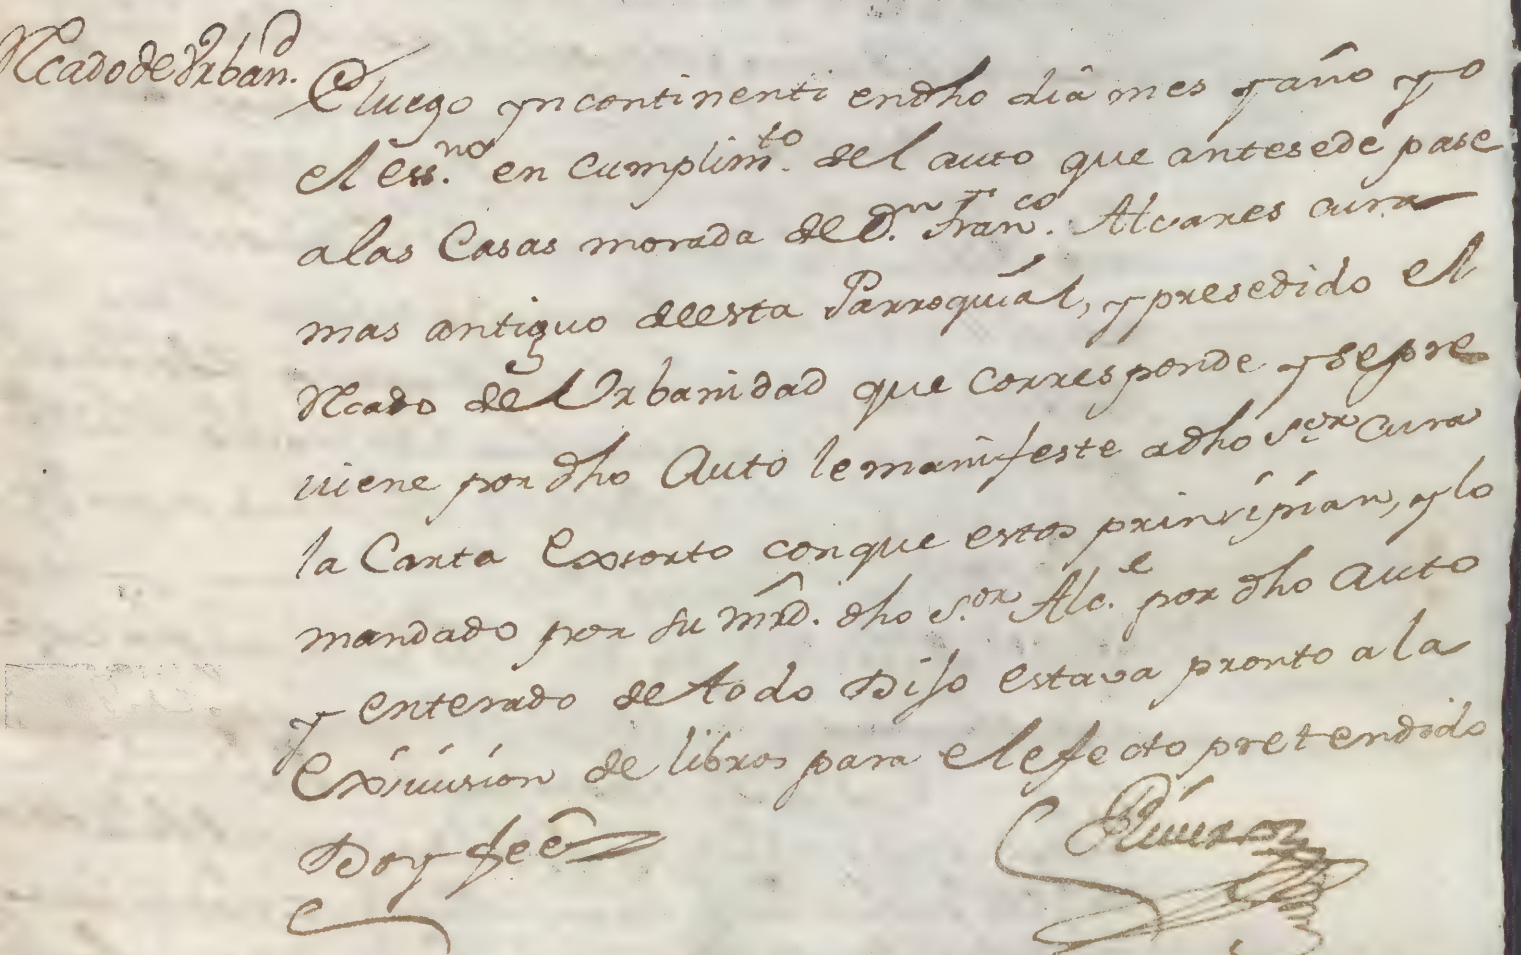 Rcado de Urban.d
Eluego yncontinenti endho dia mes y año yo
el ess.no en cumplim.to del auto que antesede pase
a las Casas morada de D.n Fran.co Alvares cura
mas antiguo deesta Parroquial, y presedido el
Rcado de Urbanidad que corresponde y se pre
viene por dho Auto le manifeste a dho s.or cura
la Carta Exsorto con que estos prinsipian, y lo
mandado por su mrd. dho s.or Alc.e por dho Auto
y enterado de todo Dijo estava pronto a la
Exsivision de libros para el efecto pretendido
Doy feé
Rivera